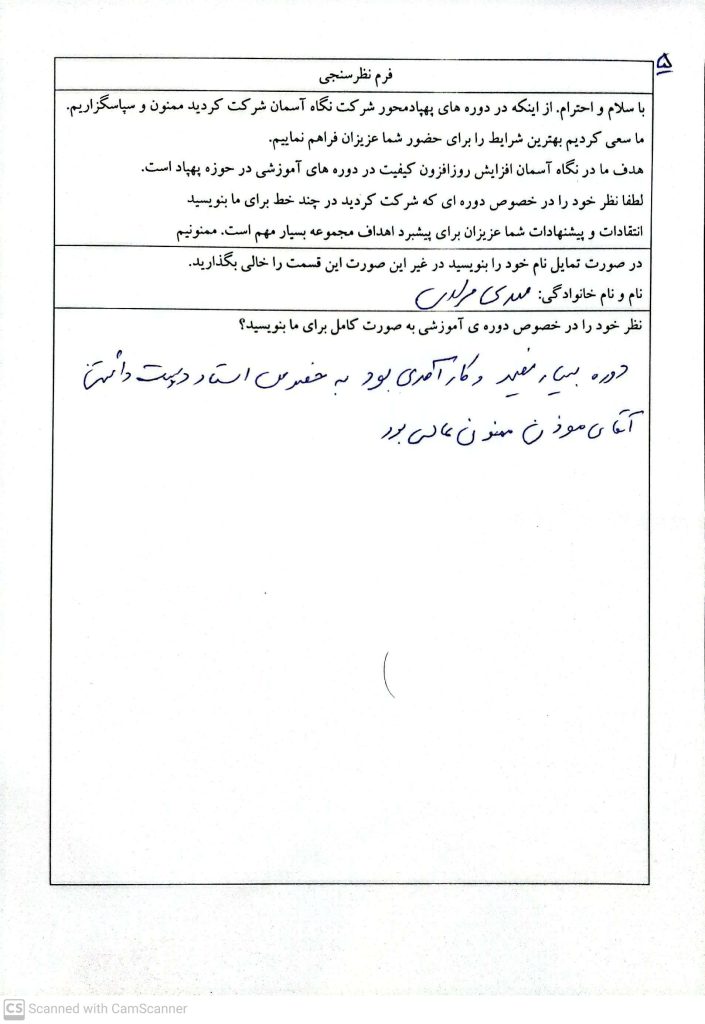 ۵
فرم نظرسنجی
با سلام و احترام. از اینکه در دوره های پهپادمحور شرکت نگاه آسمان شرکت کردید ممنون و سپاسگزاریم.
ما سعی کردیم بهترین شرایط را برای حضور شما عزیزان فراهم نماییم.
هدف ما در نگاه آسمان افزایش روزافزون کیفیت در دوره های آموزشی در حوزه پهپاد است.
لطفا نظر خود را در خصوص دوره ای که شرکت کردید در چند خط برای ما بنویسید
انتقادات و پیشنهادات شما عزیزان برای پیشبرد اهداف مجموعه بسیار مهم است. ممنونیم
در صورت تمایل نام خود را بنویسید در غیر این صورت این قسمت را خالی بگذارید.
نام و نام خانوادگی: مهدی مرادی
نظر خود را در خصوص دوره ی آموزشی به صورت کامل برای ما بنویسید؟
دوره بسیار مفید و کارآمدی بود به خصوص استاد دوست داشتنی
آقای موذن ممنون عالی بود
CS Scanned with CamScanner